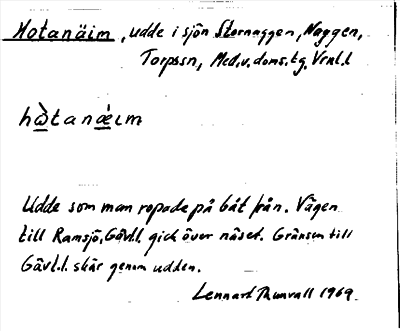 Hotanäim, udde i sjön Stornaggen, Naggen,
Torpssn, Med.v.doms.tg. Vrnl.l
hὼtanǽım
Udde som man ropade på båt från. Vägen
till Ramsjö, Gävl.l. gick över näset. Gränsen till
Gävl.l. skär genom udden.
Lennart Thunvall 1969.